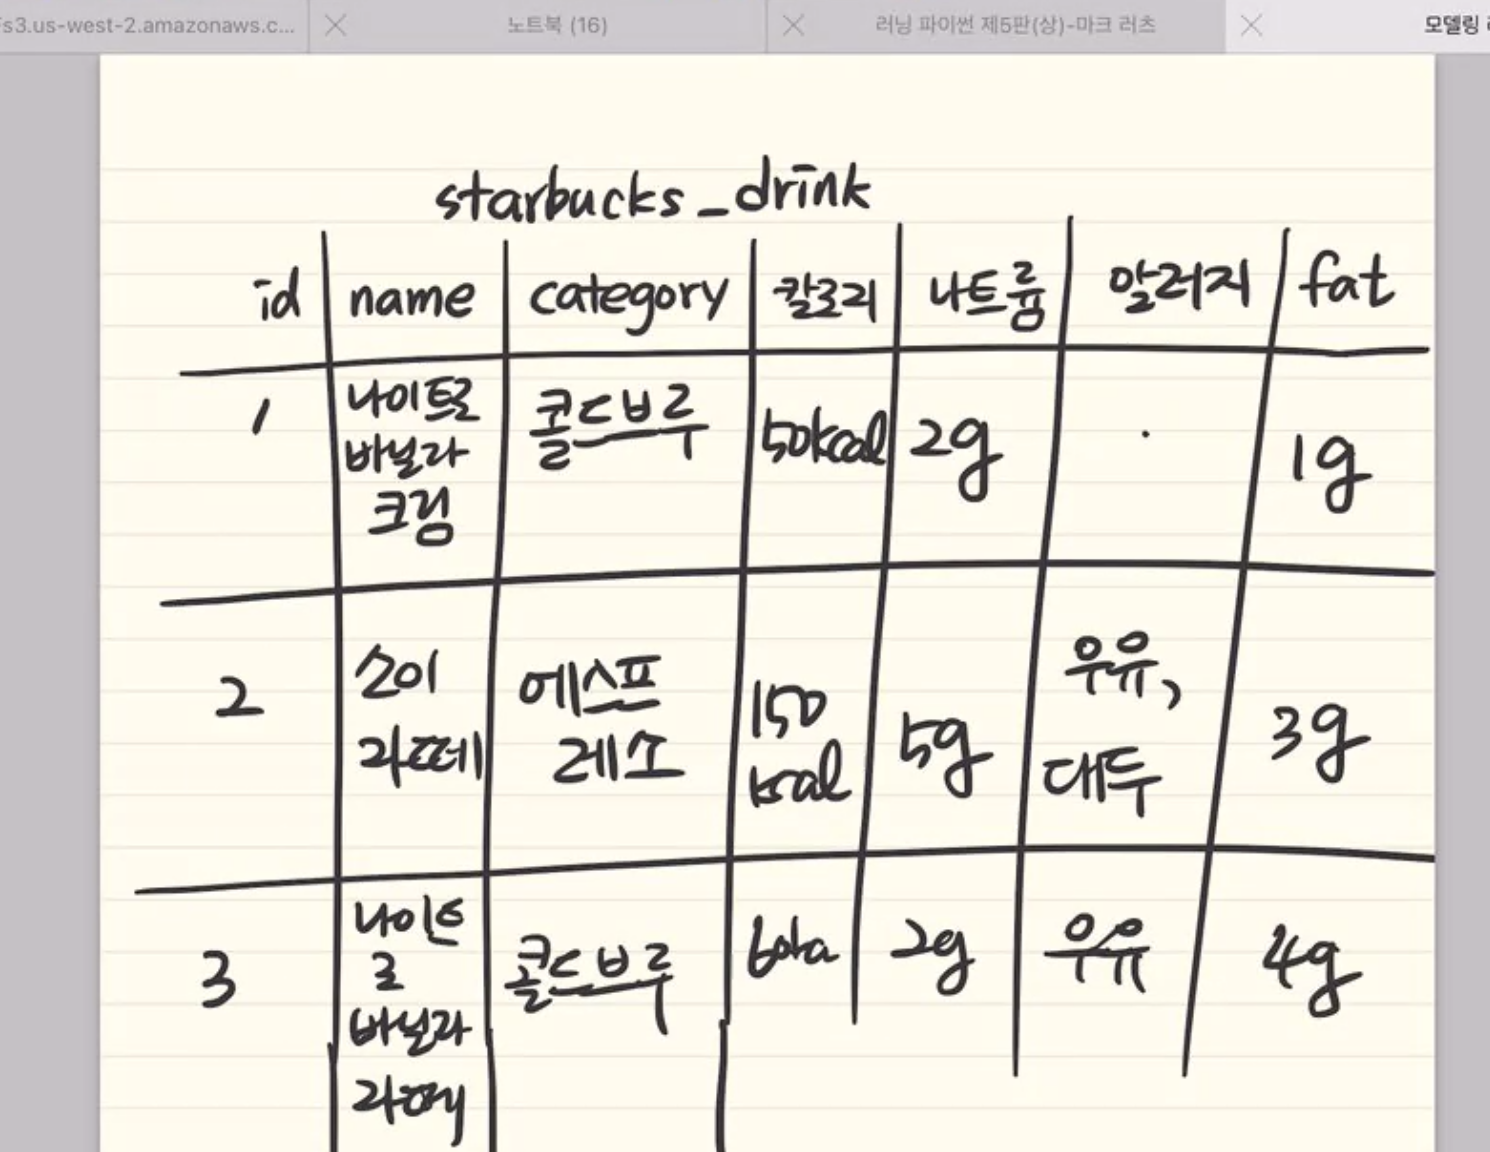 s3.us-west-2.amazonaws.c...
노트북 (16)
러닝 파이썬 제5판(상)-마크 러츠
모델링
starbucks_drink
id name category 칼로리 나트륨 알러지 fat
1 나이트로 콜드브루 50kcal 2g 1g
바닐라
크림
2 소이 에스프 150 5g 우유, 3g
라떼 레소 kcal 대두
3 나이트 콜드브루 2g 우유 4g
로
바닐라
라떼